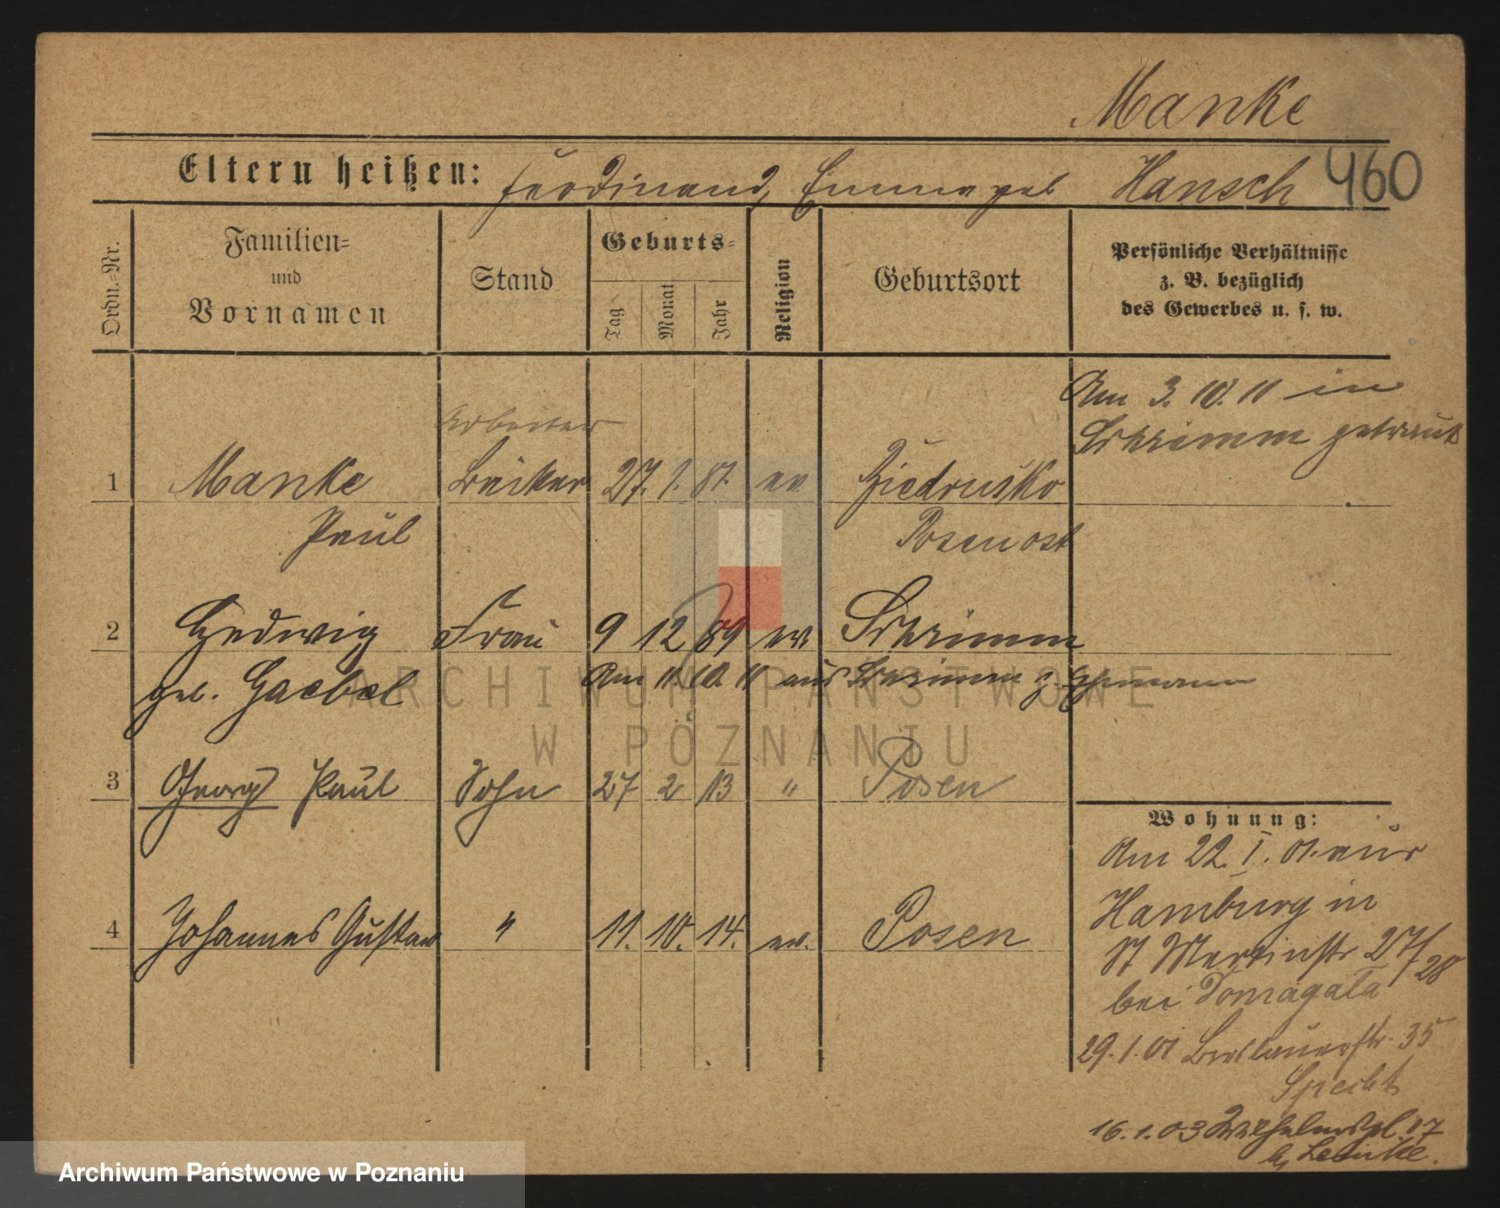 Manke
Eltern heißen: Ferdinand, Emma geb Hansch 460
Ordn.-Nr.
Familien-
und
Vornamen
Stand
Geburts-
Tag
Monat
Jahr
Religion
Geburtsort
Persönliche Verhältnisse
z. B. bezüglich
des Gewerbes u. s. w.
Am 3. 10. 11 in
Schrimm getraut
Arbeiter
1 Manke Bäcker 27. 1. 87. ev Ziedrusko
Paul Posen ost
2 Hedwig Frau 9 12 89 ev Schrimm
geb. Gaebel Am 11. 10. 11 aus Schrimm z. Ehemann
3 Georg Paul Sohn 27 2 13 " Posen
4 Johannes Gustav " 11. 10. 14. ev. Posen
Wohnung:
Am 22. I. 01. aus
Hamburg in
St Martinstr 27/28
bei Domagała
29. 1. 01 Breslauerstr. 35
Specht
16. 1. 03 Wilhelmspl. 17
b. Lemke.
ARCHIWUM PAŃSTWOWE
W POZNANIU
Archiwum Państwowe w Poznaniu